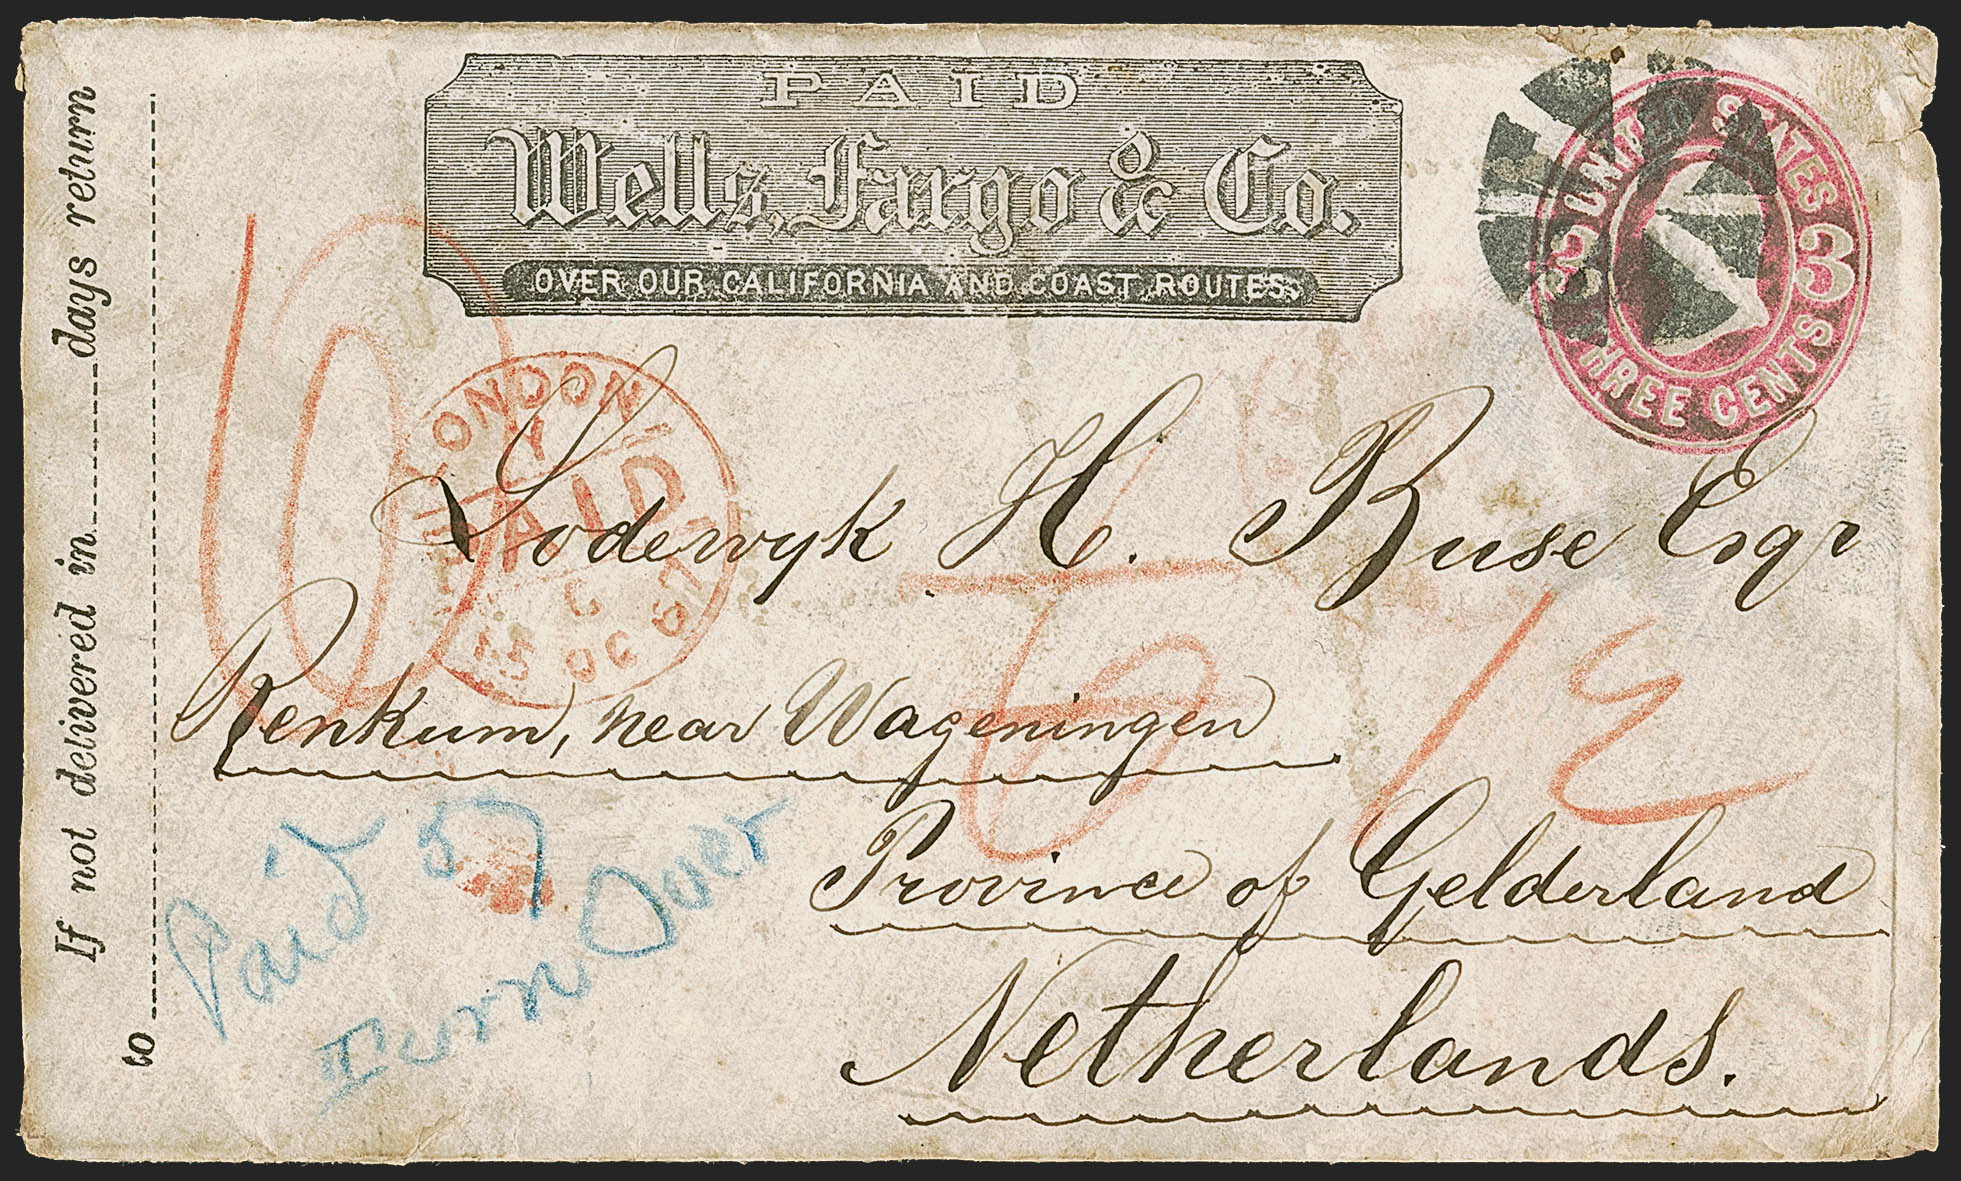 PAID
Wells, Fargo & Co.
OVER OUR CALIFORNIA AND COAST ROUTES.
UNITED STATES
3 3
THREE CENTS
If not delivered in days return
to
LONDON
Y
PAID
OC 67
Lodewyk H. Buse Esqr
Renkum, near Wageningen
Province of Gelderland
Netherlands.
6
12
Paid
Turn Over